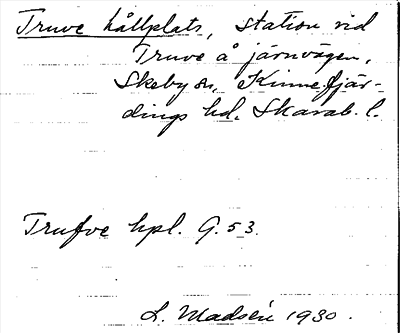 Truve hållplats, station vid
Truve å järnvägen,
Skeby sn, Kinnefjär-
dings hd. Skarab. l.
Trufve hpl. G. 53.
L. Madsén 1930.